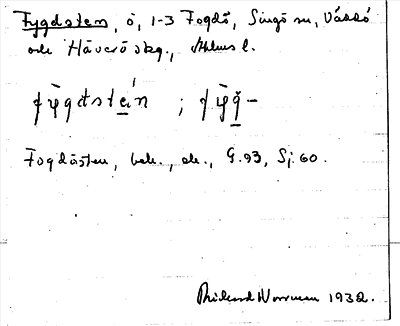 Fygdsten, ö, 1-3 Fogdö, Singö sn, Väddö
och Häverö skg., Sthlms l.
fỳgdste̱ín ; fỳg̱-
Fogdösten, bek., ek., G.93, Sj.60.
Rikard Norrman 1932.